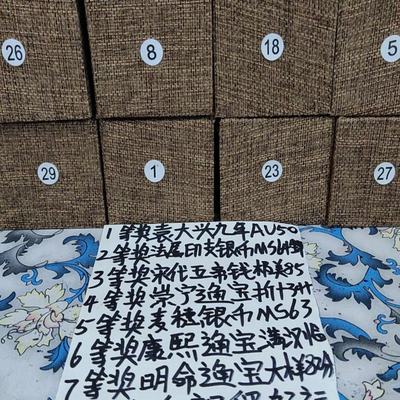 26 8 18 5
29 1 23 27
1等奖袁大头九年AU50
2等奖法属印支银币MS64
3等奖宋代五帝钱标美85
4等奖崇宁通宝折十
5等奖麦穗银币MS63
6等奖康熙通宝满汉
7等奖明命通宝大样82分